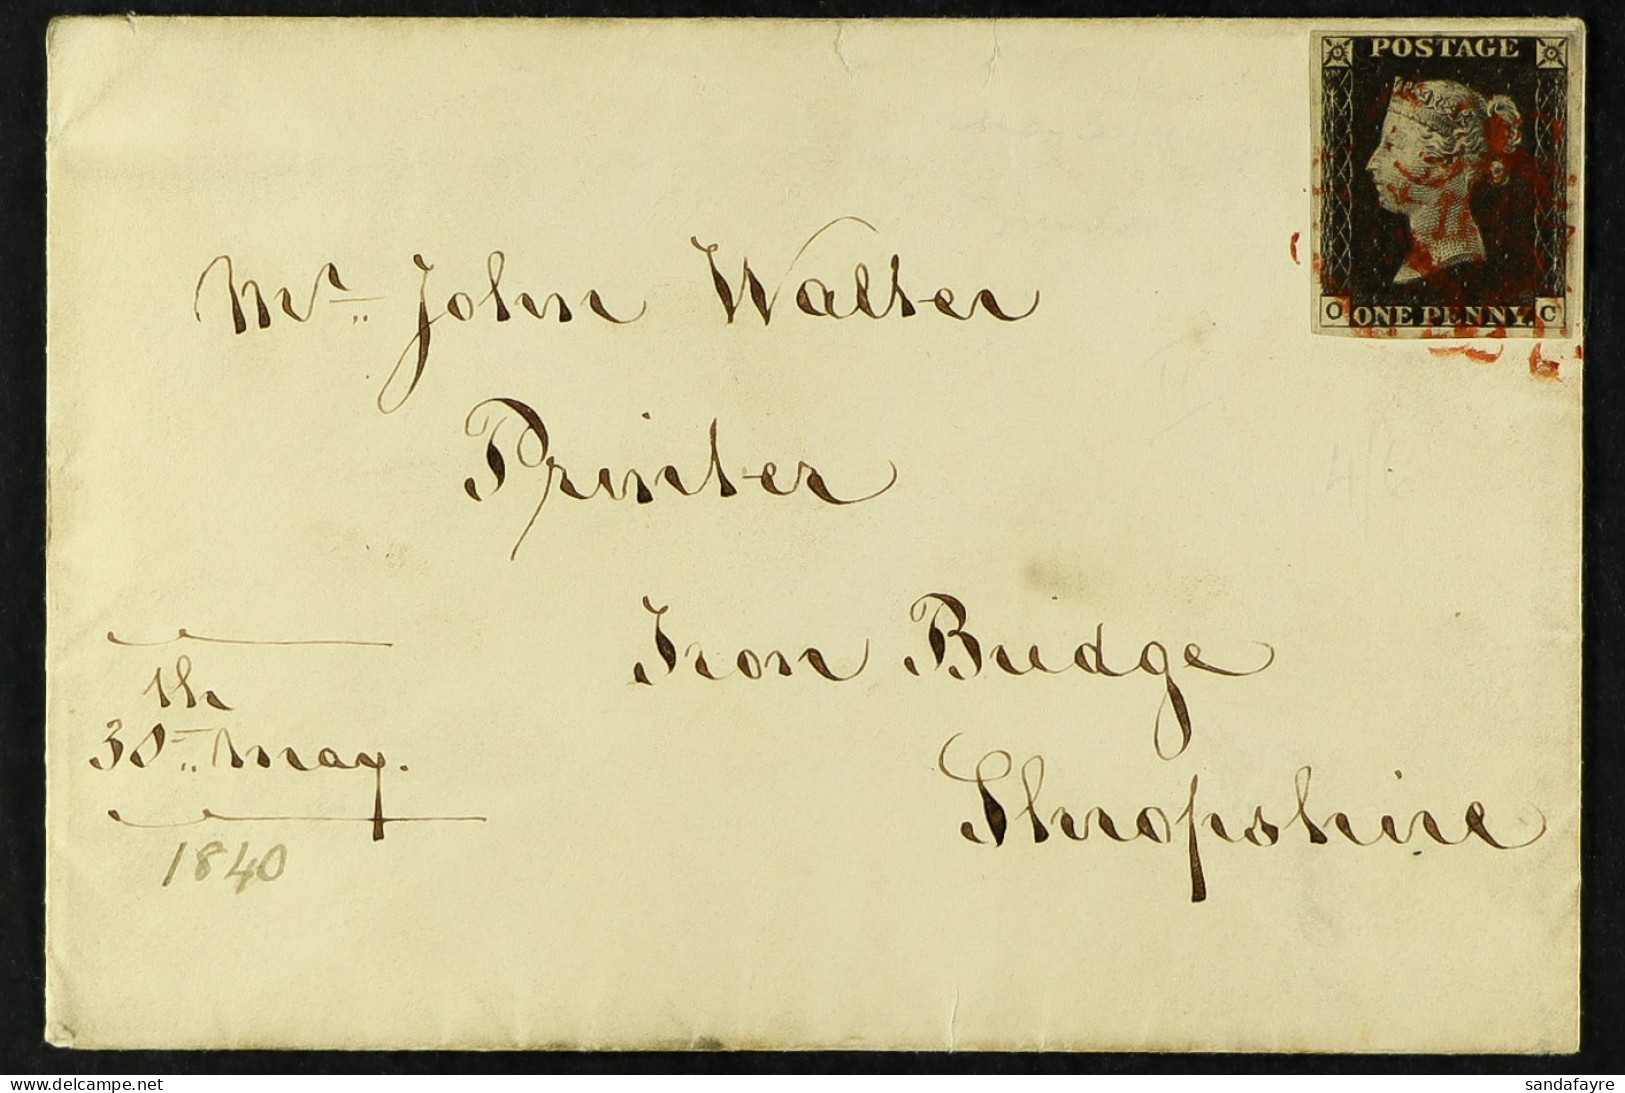 POSTAGE
O ONE PENNY. C
Mr. John Walter
Printer
Iron Bridge
Shropshire
th
30.. May.
1840
www.delcampe.net
sandafayre